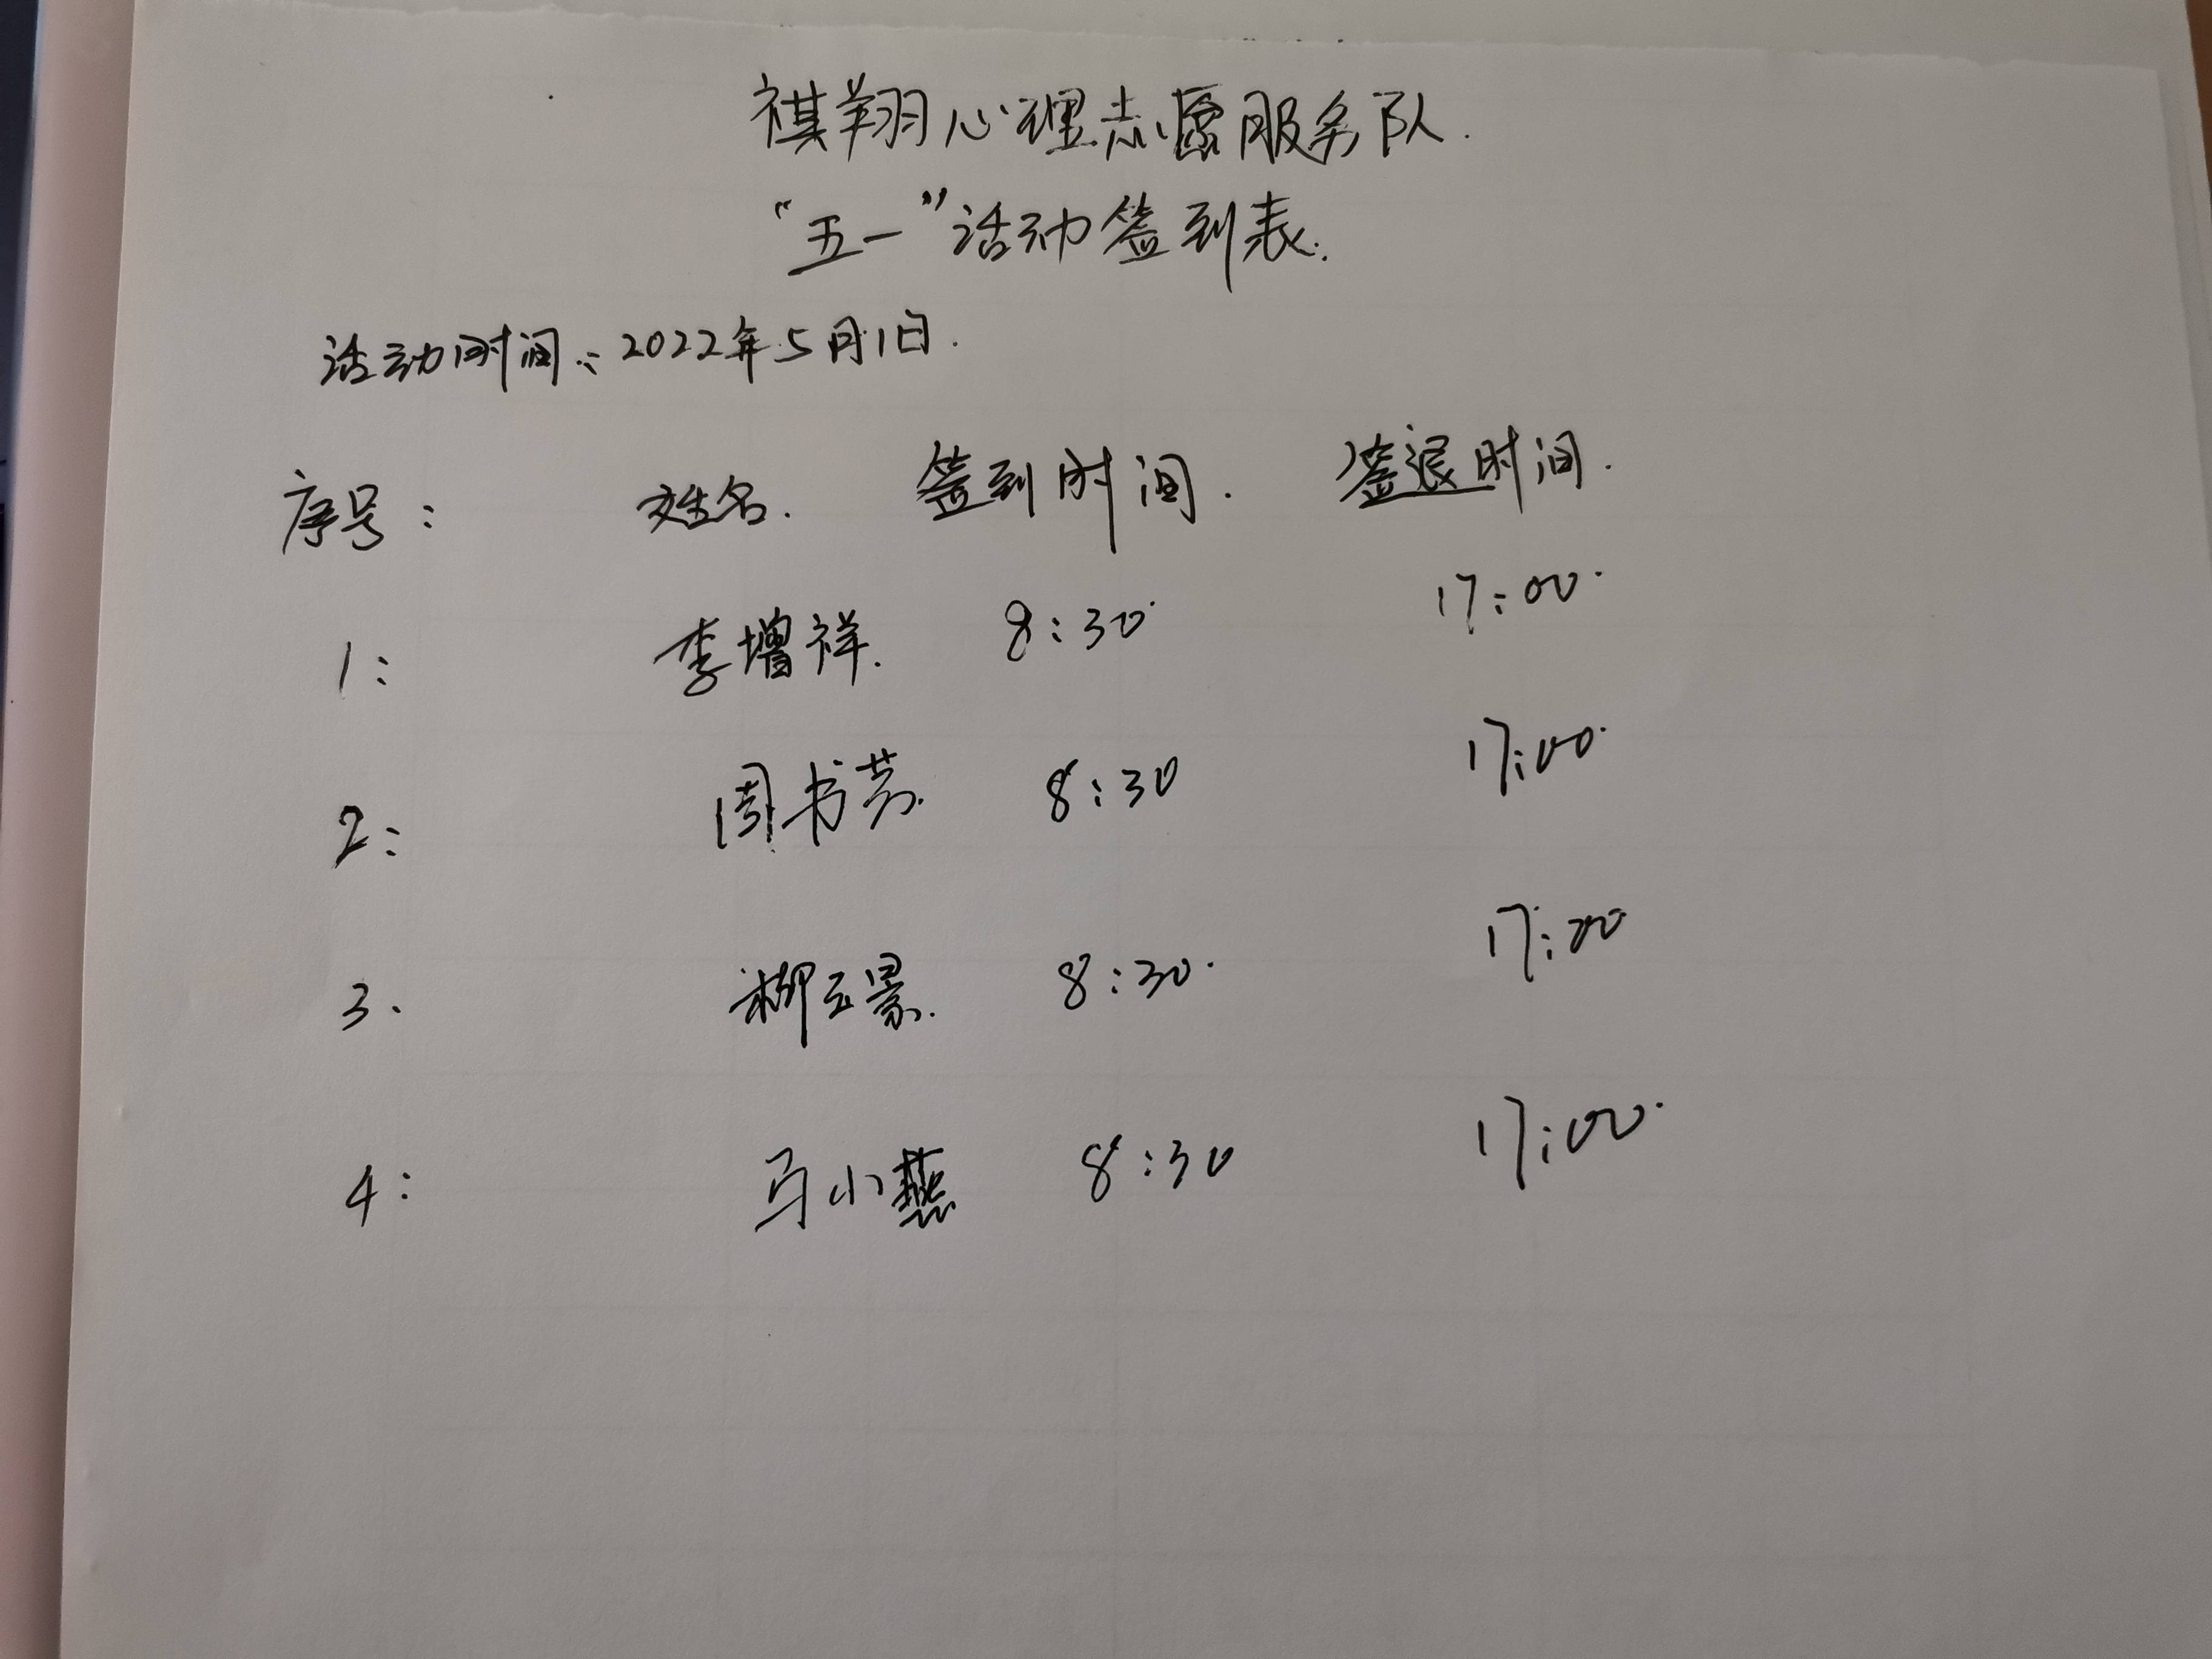 祺翔心理志愿服务队.
“五一”活动签到表.
活动时间:2022年5月1日.
序号: 姓名. 签到时间. 签退时间.
1: 李增祥. 8:30 17:00.
2: 周书芳. 8:30 17:00.
3. 柳玉景. 8:30. 17:00
4: 马小燕 8:30 17:00.